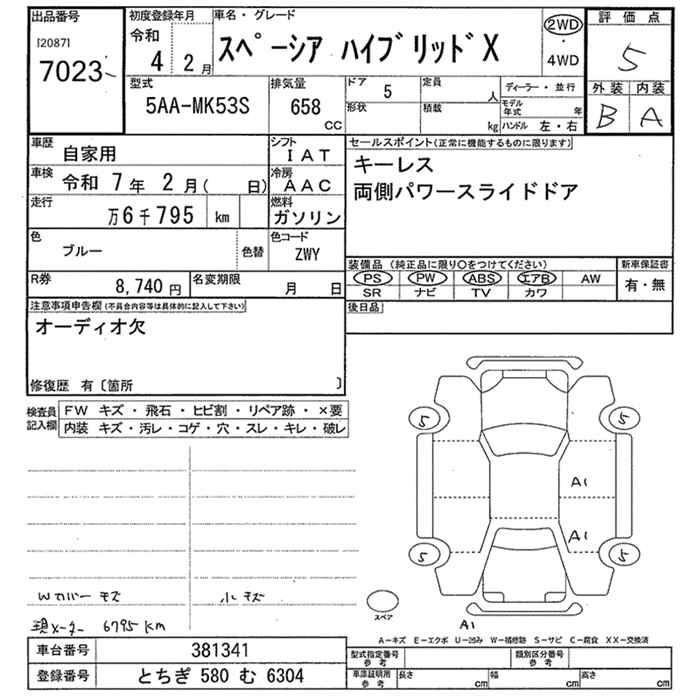 出品番号 初度登録年月 車名・グレード 評価点
[2087]
7023 令和 4 2月 スペーシア ハイブリッドX 2WD・4WD 5
型式 排気量 ドア 5 定員 人 ディーラー・並行 外装 内装
5AA-MK53S 658 CC 形状 積載 kg モデル年式 年 ハンドル 左・右 B A
車歴 自家用 シフト IAT セールスポイント(正常に機能するものに限ります)
車検 令和 7年 2月( 日) 冷房 AAC キーレス
走行 万6千795 km 燃料 ガソリン 両側パワースライドドア
色 ブルー 色替 色コード ZWY
装備品 (純正品に限り○をつけてください) 新車保証書
R券 8,740円 名変期限 月 日 PS PW ABS エアB AW 有・無
SR ナビ TV カワ
注意事項申告欄(不具合内容等は具体的に記入して下さい) 後日品
オーディオ欠
修復歴 有〔箇所 〕
検査員記入欄 FW キズ・飛石・ヒビ割・リペア跡・×要
内装 キズ・汚レ・コゲ・穴・スレ・キレ・破レ
5 5
A1
A1
5 5
Wカバー キズ 小キズ
スペア
現メーター 6795km A1
A-キズ E-エクボ U-凹み W-補修跡 S-サビ C-腐食 XX-交換済
車台番号 381341 型式指定番号 参考 類別区分番号 参考
登録番号 とちぎ 580 む 6304 車庫証明用 参考 長さ cm 幅 cm 高さ cm